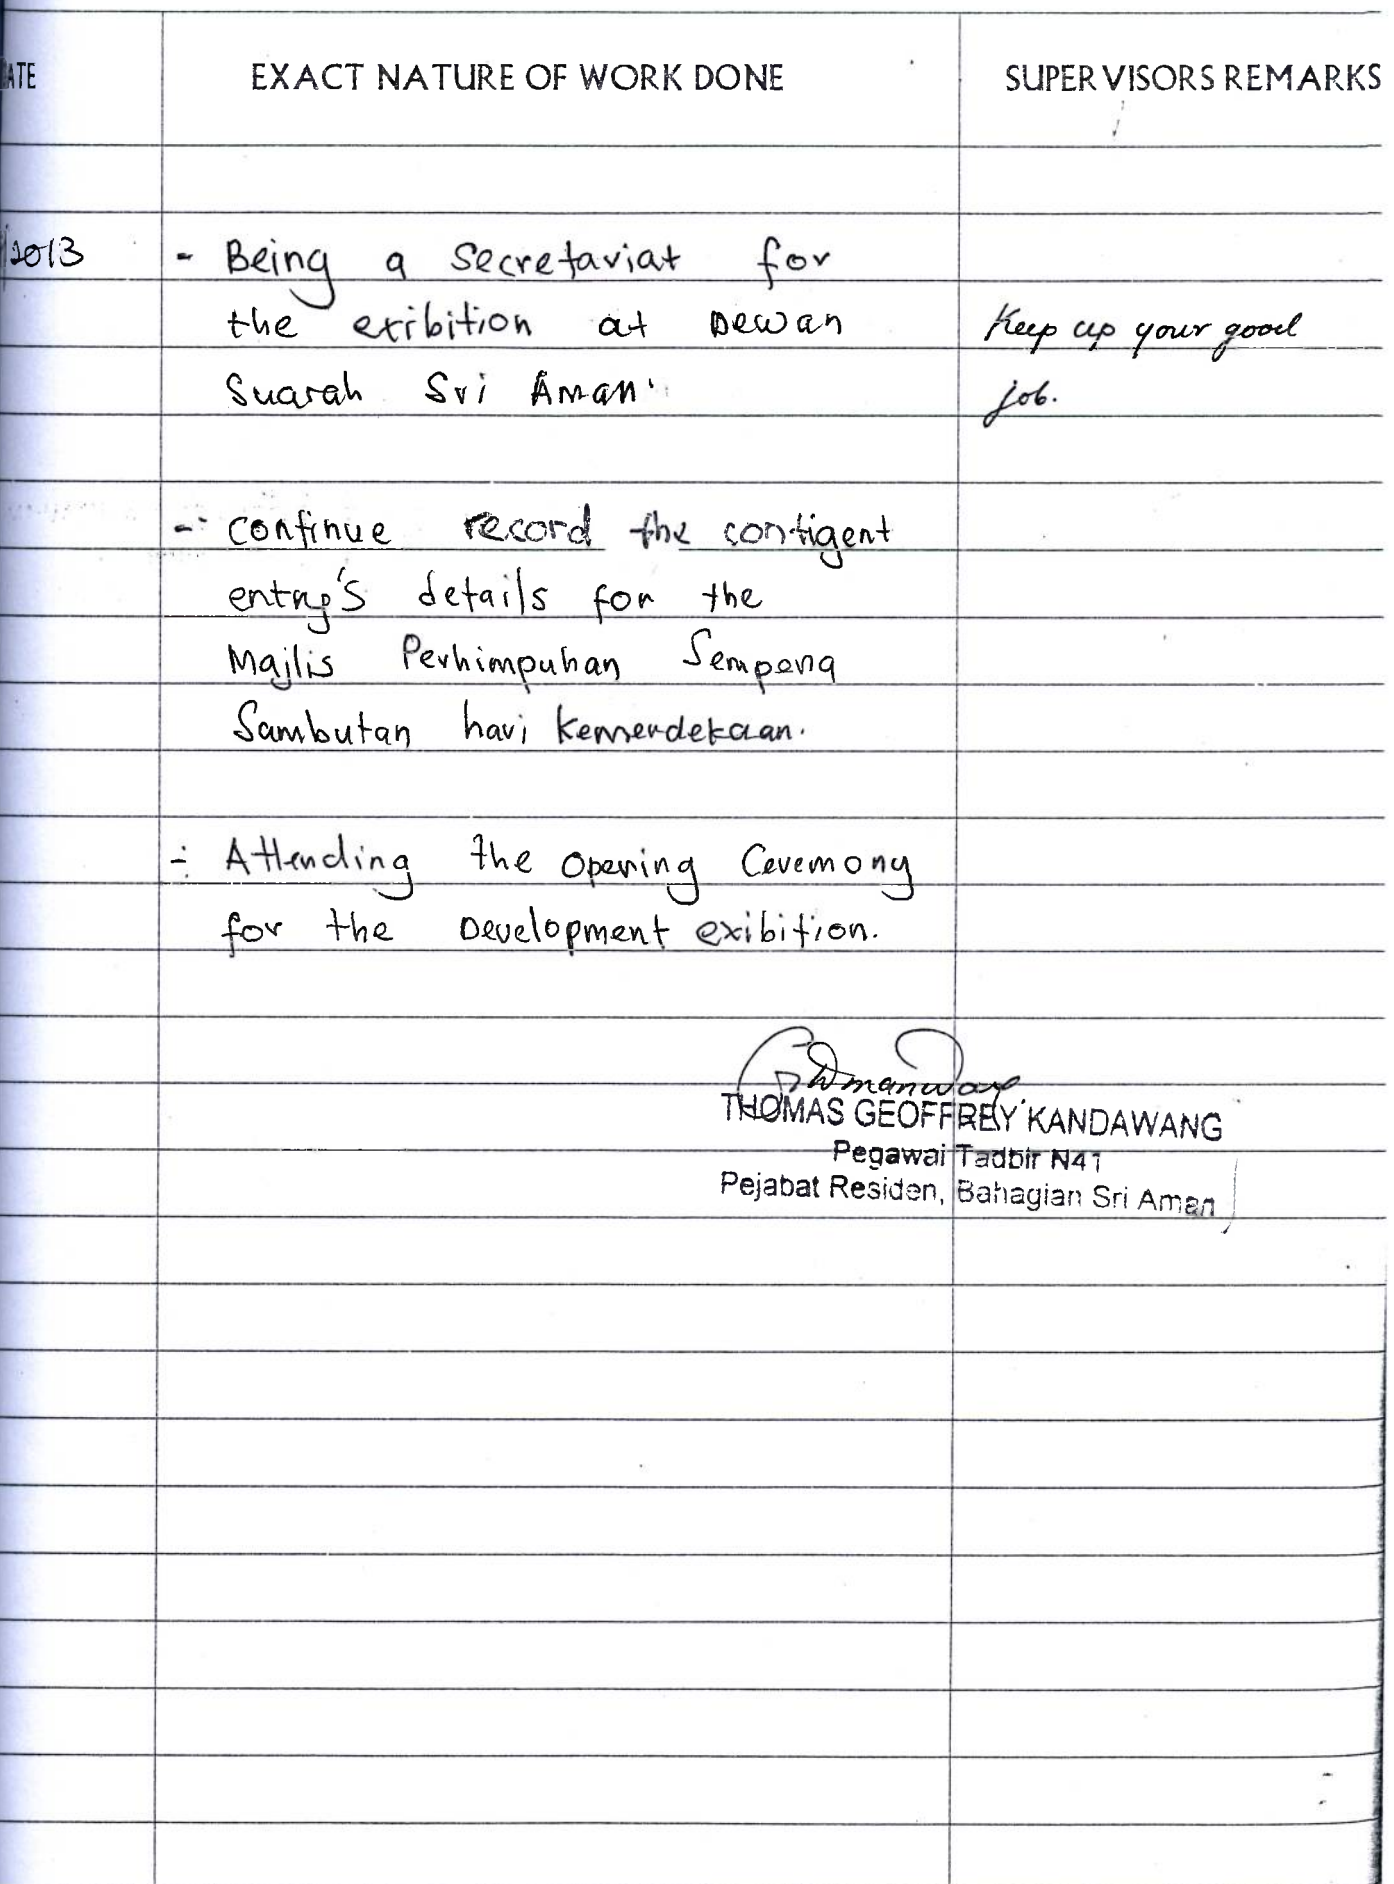 ATE EXACT NATURE OF WORK DONE SUPERVISORS REMARKS
/2013 - Being a secretariat for
the exibition at Dewan Keep up your good
Suarah Sri Aman. job.
- continue record the contigent
entry's details for the
Majlis Perhimpuhan Sempena
Sambutan hari kemerdekaan.
- Attending the opening Ceremony
for the Development exibition.
THOMAS GEOFFREY KANDAWANG
Pegawai Tadbir N41
Pejabat Residen, Bahagian Sri Aman